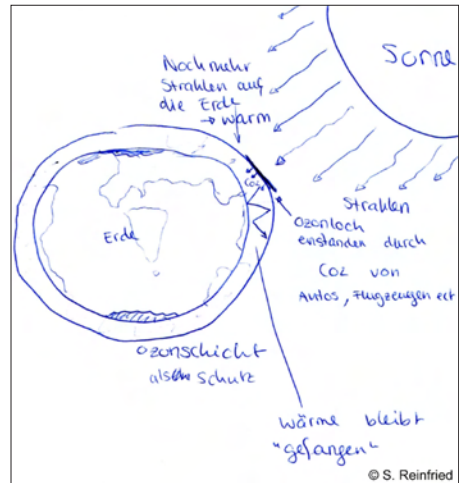 Sonne
Noch mehr
Strahlen auf
die Erde
→ warm
CO2
Strahlen
Ozonloch
enstanden durch
CO2 von
Autos, Flugzeugen ect
Erde
Ozonschicht
als Schutz
wärme bleibt
"gefangen"
© S. Reinfried